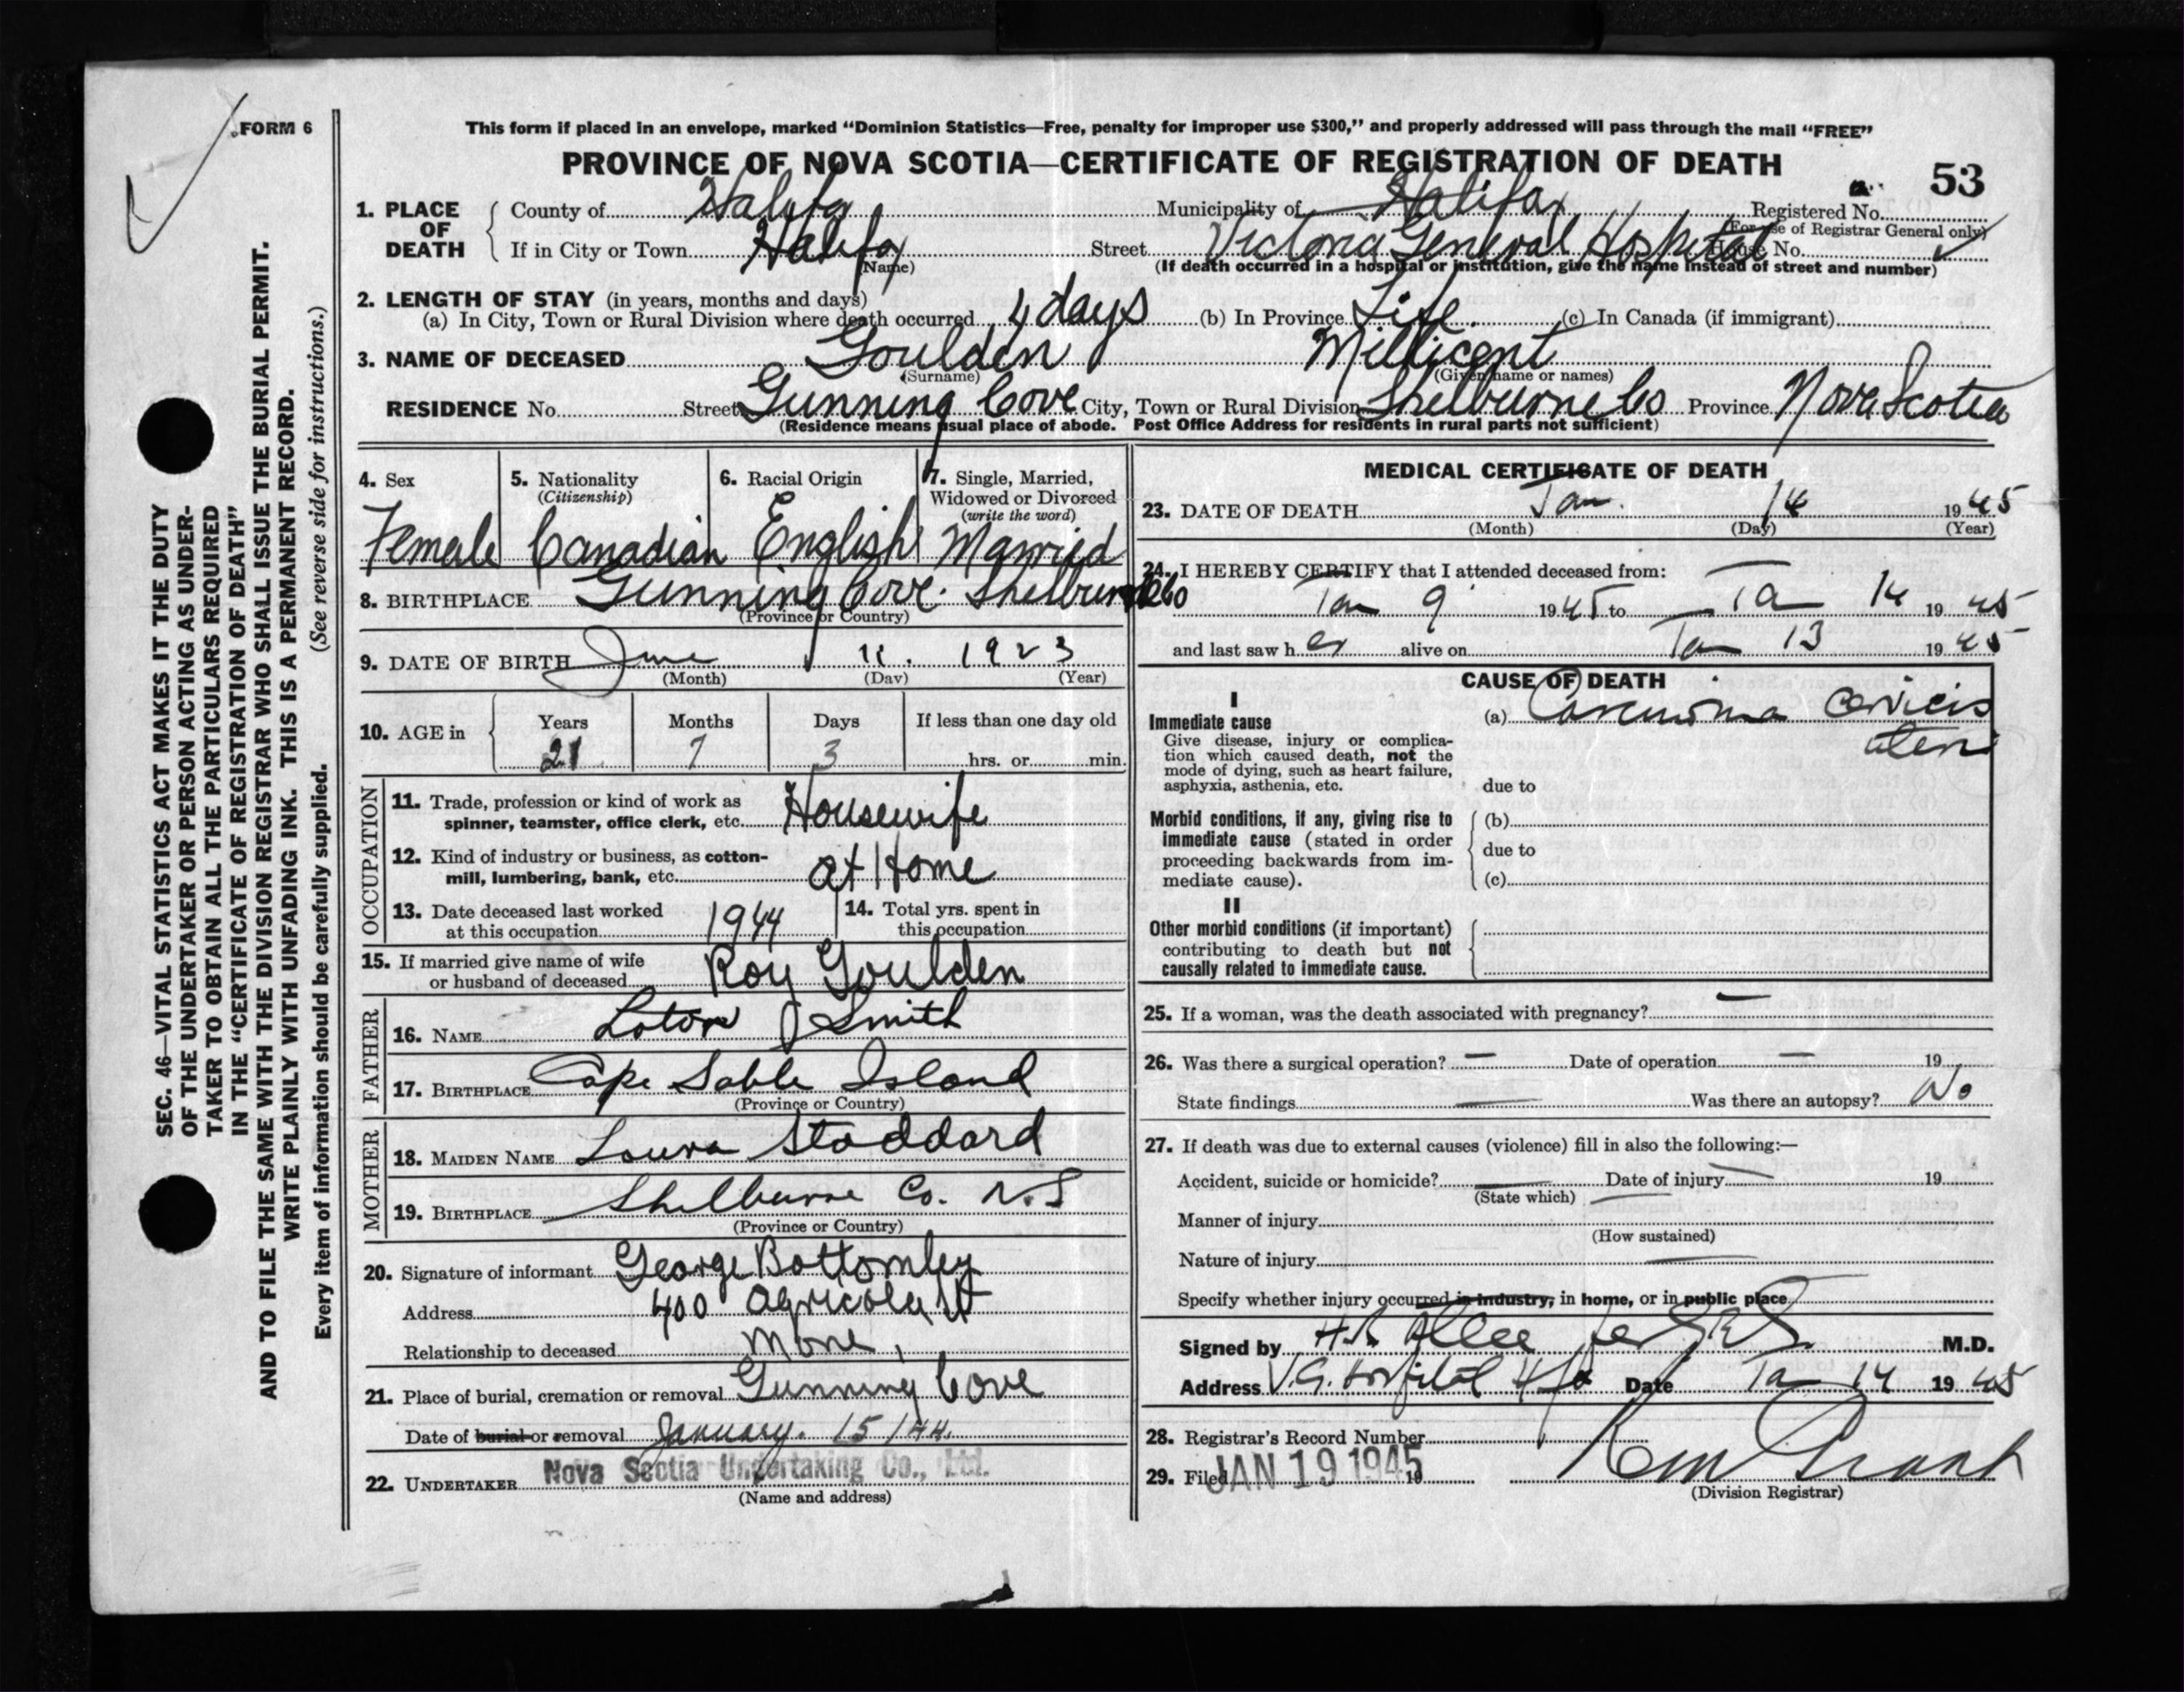 FORM 6
This form if placed in an envelope, marked "Dominion Statistics—Free, penalty for improper use $300," and properly addressed will pass through the mail "FREE"
PROVINCE OF NOVA SCOTIA—CERTIFICATE OF REGISTRATION OF DEATH
53
1. PLACE OF DEATH
County of Halifax Municipality of Halifax Registered No.
(For use of Registrar General only)
If in City or Town Halifax Street Victoria General Hospital House No.
(Name) (If death occurred in a hospital or institution, give the name instead of street and number)
2. LENGTH OF STAY (in years, months and days)
(a) In City, Town or Rural Division where death occurred 4 days (b) In Province Life. (c) In Canada (if immigrant)
3. NAME OF DECEASED Goulden Millicent
(Surname) (Given name or names)
RESIDENCE No. Street Gunning Cove City, Town or Rural Division Shelburne Co Province Nova Scotia
(Residence means usual place of abode. Post Office Address for residents in rural parts not sufficient)
4. Sex
Female
5. Nationality
(Citizenship)
Canadian
6. Racial Origin
English
7. Single, Married,
Widowed or Divorced
(write the word)
Married
8. BIRTHPLACE Gunning Cove. Shelburne Co
(Province or Country)
9. DATE OF BIRTH June 11. 1923
(Month) (Day) (Year)
10. AGE in
Years Months Days If less than one day old
21 7 3 hrs. or min.
OCCUPATION
11. Trade, profession or kind of work as
spinner, teamster, office clerk, etc. Housewife
12. Kind of industry or business, as cotton-
mill, lumbering, bank, etc. at Home
13. Date deceased last worked
at this occupation 1944
14. Total yrs. spent in
this occupation
15. If married give name of wife
or husband of deceased Roy Goulden
FATHER
16. NAME Loton J Smith
17. BIRTHPLACE Cape Sable Island
(Province or Country)
MOTHER
18. MAIDEN NAME Laura Stoddard
19. BIRTHPLACE Shelburne Co. N.S
(Province or Country)
20. Signature of informant George Bottomley
Address 400 Agricola St
Relationship to deceased None,
21. Place of burial, cremation or removal Gunning Cove
Date of burial or removal January. 15/44.
22. UNDERTAKER Nova Scotia Undertaking Co., Ltd.
(Name and address)
MEDICAL CERTIFICATE OF DEATH
23. DATE OF DEATH Jan. 14 1945
(Month) (Day) (Year)
24. I HEREBY CERTIFY that I attended deceased from:
Jan 9 1945 to Jan 14 1945
and last saw her alive on Jan 13 1945
CAUSE OF DEATH
I
Immediate cause
Give disease, injury or complica-
tion which caused death, not the
mode of dying, such as heart failure,
asphyxia, asthenia, etc.
(a) Carcinoma cervicis
uteri
due to
Morbid conditions, if any, giving rise to
immediate cause (stated in order
proceeding backwards from im-
mediate cause).
(b)
due to
(c)
II
Other morbid conditions (if important)
contributing to death but not
causally related to immediate cause.
25. If a woman, was the death associated with pregnancy? —
26. Was there a surgical operation? — Date of operation — 19
State findings — Was there an autopsy? No
27. If death was due to external causes (violence) fill in also the following:—
Accident, suicide or homicide? — Date of injury — 19
(State which)
Manner of injury
(How sustained)
Nature of injury —
Specify whether injury occurred in industry, in home, or in public place
Signed by H.B. Atlee per M.D.
Address V.G. Hospital Hfx Date Jan 14 1945
28. Registrar's Record Number
29. Filed JAN 19 1945 19
(Division Registrar)
SEC. 46—VITAL STATISTICS ACT MAKES IT THE DUTY
OF THE UNDERTAKER OR PERSON ACTING AS UNDER-
TAKER TO OBTAIN ALL THE PARTICULARS REQUIRED
IN THE "CERTIFICATE OF REGISTRATION OF DEATH"
AND TO FILE THE SAME WITH THE DIVISION REGISTRAR WHO SHALL ISSUE THE BURIAL PERMIT.
WRITE PLAINLY WITH UNFADING INK. THIS IS A PERMANENT RECORD.
Every item of information should be carefully supplied. (See reverse side for instructions.)